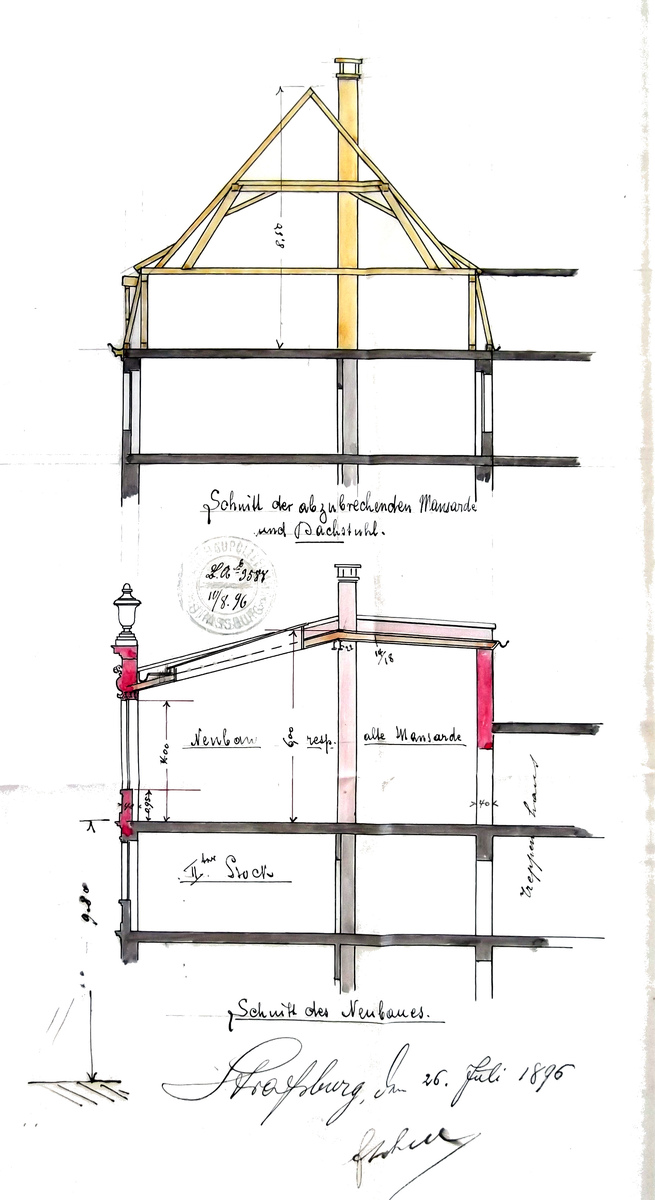 8,50
Schnitt der abzubrechenden Mansarde
und Dachstuhl.
9587
11/8. 96
14/18
4.00
Neubau resp. alte Mansarde
6,00
0,95
40
Treppenhaus
IIter Stock
9.80
Schnitt des Neubaues.
Straßburg, den 26. Juli 1896